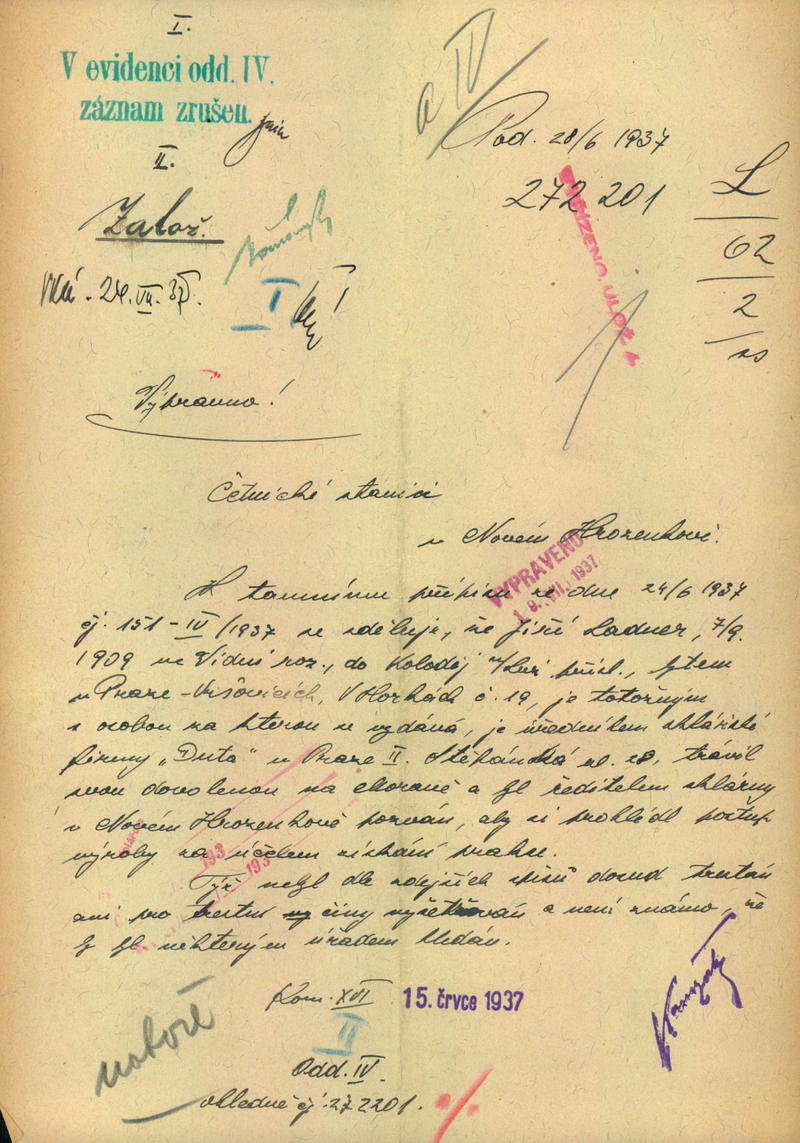 I.
V evidenci odd. IV.
záznam zrušen.
II.
Založ.
24. VII. 37.
I
a IV
Pod. 28/6 1937
272 201
L
62
2
Vybráno!
Četnické stanici
v Novém Hrozenkově.
VYPRAVENO
1937
K tamnímu přípisu ze dne 24/6 1937
čj. 151-IV/1937 se sděluje, že Jiří Ladner, 7/9.
1909 ve Vídni roz., do Koloděj n/Luž. přísl., bytem
v Praze-Vršovicích, V Horkách č. 19, je totožným
s osobou za kterou se vydává, je úředníkem sklářské
firmy „Duta“ v Praze II. Štěpánská ul. 28, trávil
svou dovolenou na Moravě a byl ředitelem sklárny
v Novém Hrozenkově pozván, aby si prohlédl postup
výroby za účelem získání praxe.
Týž nebyl dle zdejších spisů dosud trestán
ani pro trestní činy vyšetřován a není známo, že
by byl některým úřadem hledán.
Kom. XVI 15. črvce 1937
II
Odd. IV.
ohledně čj. 272201.